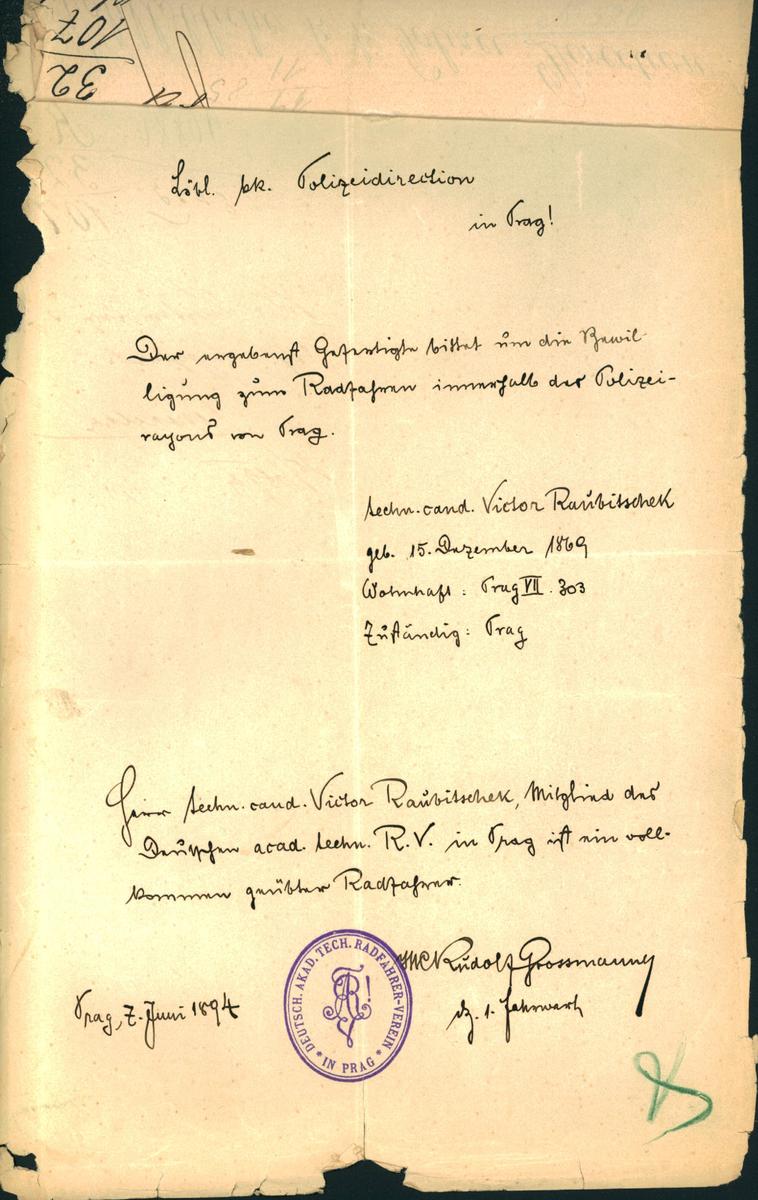 107
32
Löbl. k.k. Polizeidirection
in Prag!
Der ergebenst Gefertigte bittet um die Bewil-
ligung zum Radfahren innerhalb des Polizei-
rayons von Prag.
techn. cand. Victor Raubitschek
geb. 15. Dezember 1869
Wohnhaft: Prag VII. 303
Zuständig: Prag
Herr techn. cand. Victor Raubitschek, Mitglied des
Deutschen acad. techn. R.V. in Prag ist ein voll-
kommen geübter Radfahrer.
Rudolf Grossmann
dz. 1. Fahrwart
Prag, 7. Juni 1894
DEUTSCH. AKAD. TECH. RADFAHRER-VEREIN
* IN PRAG *